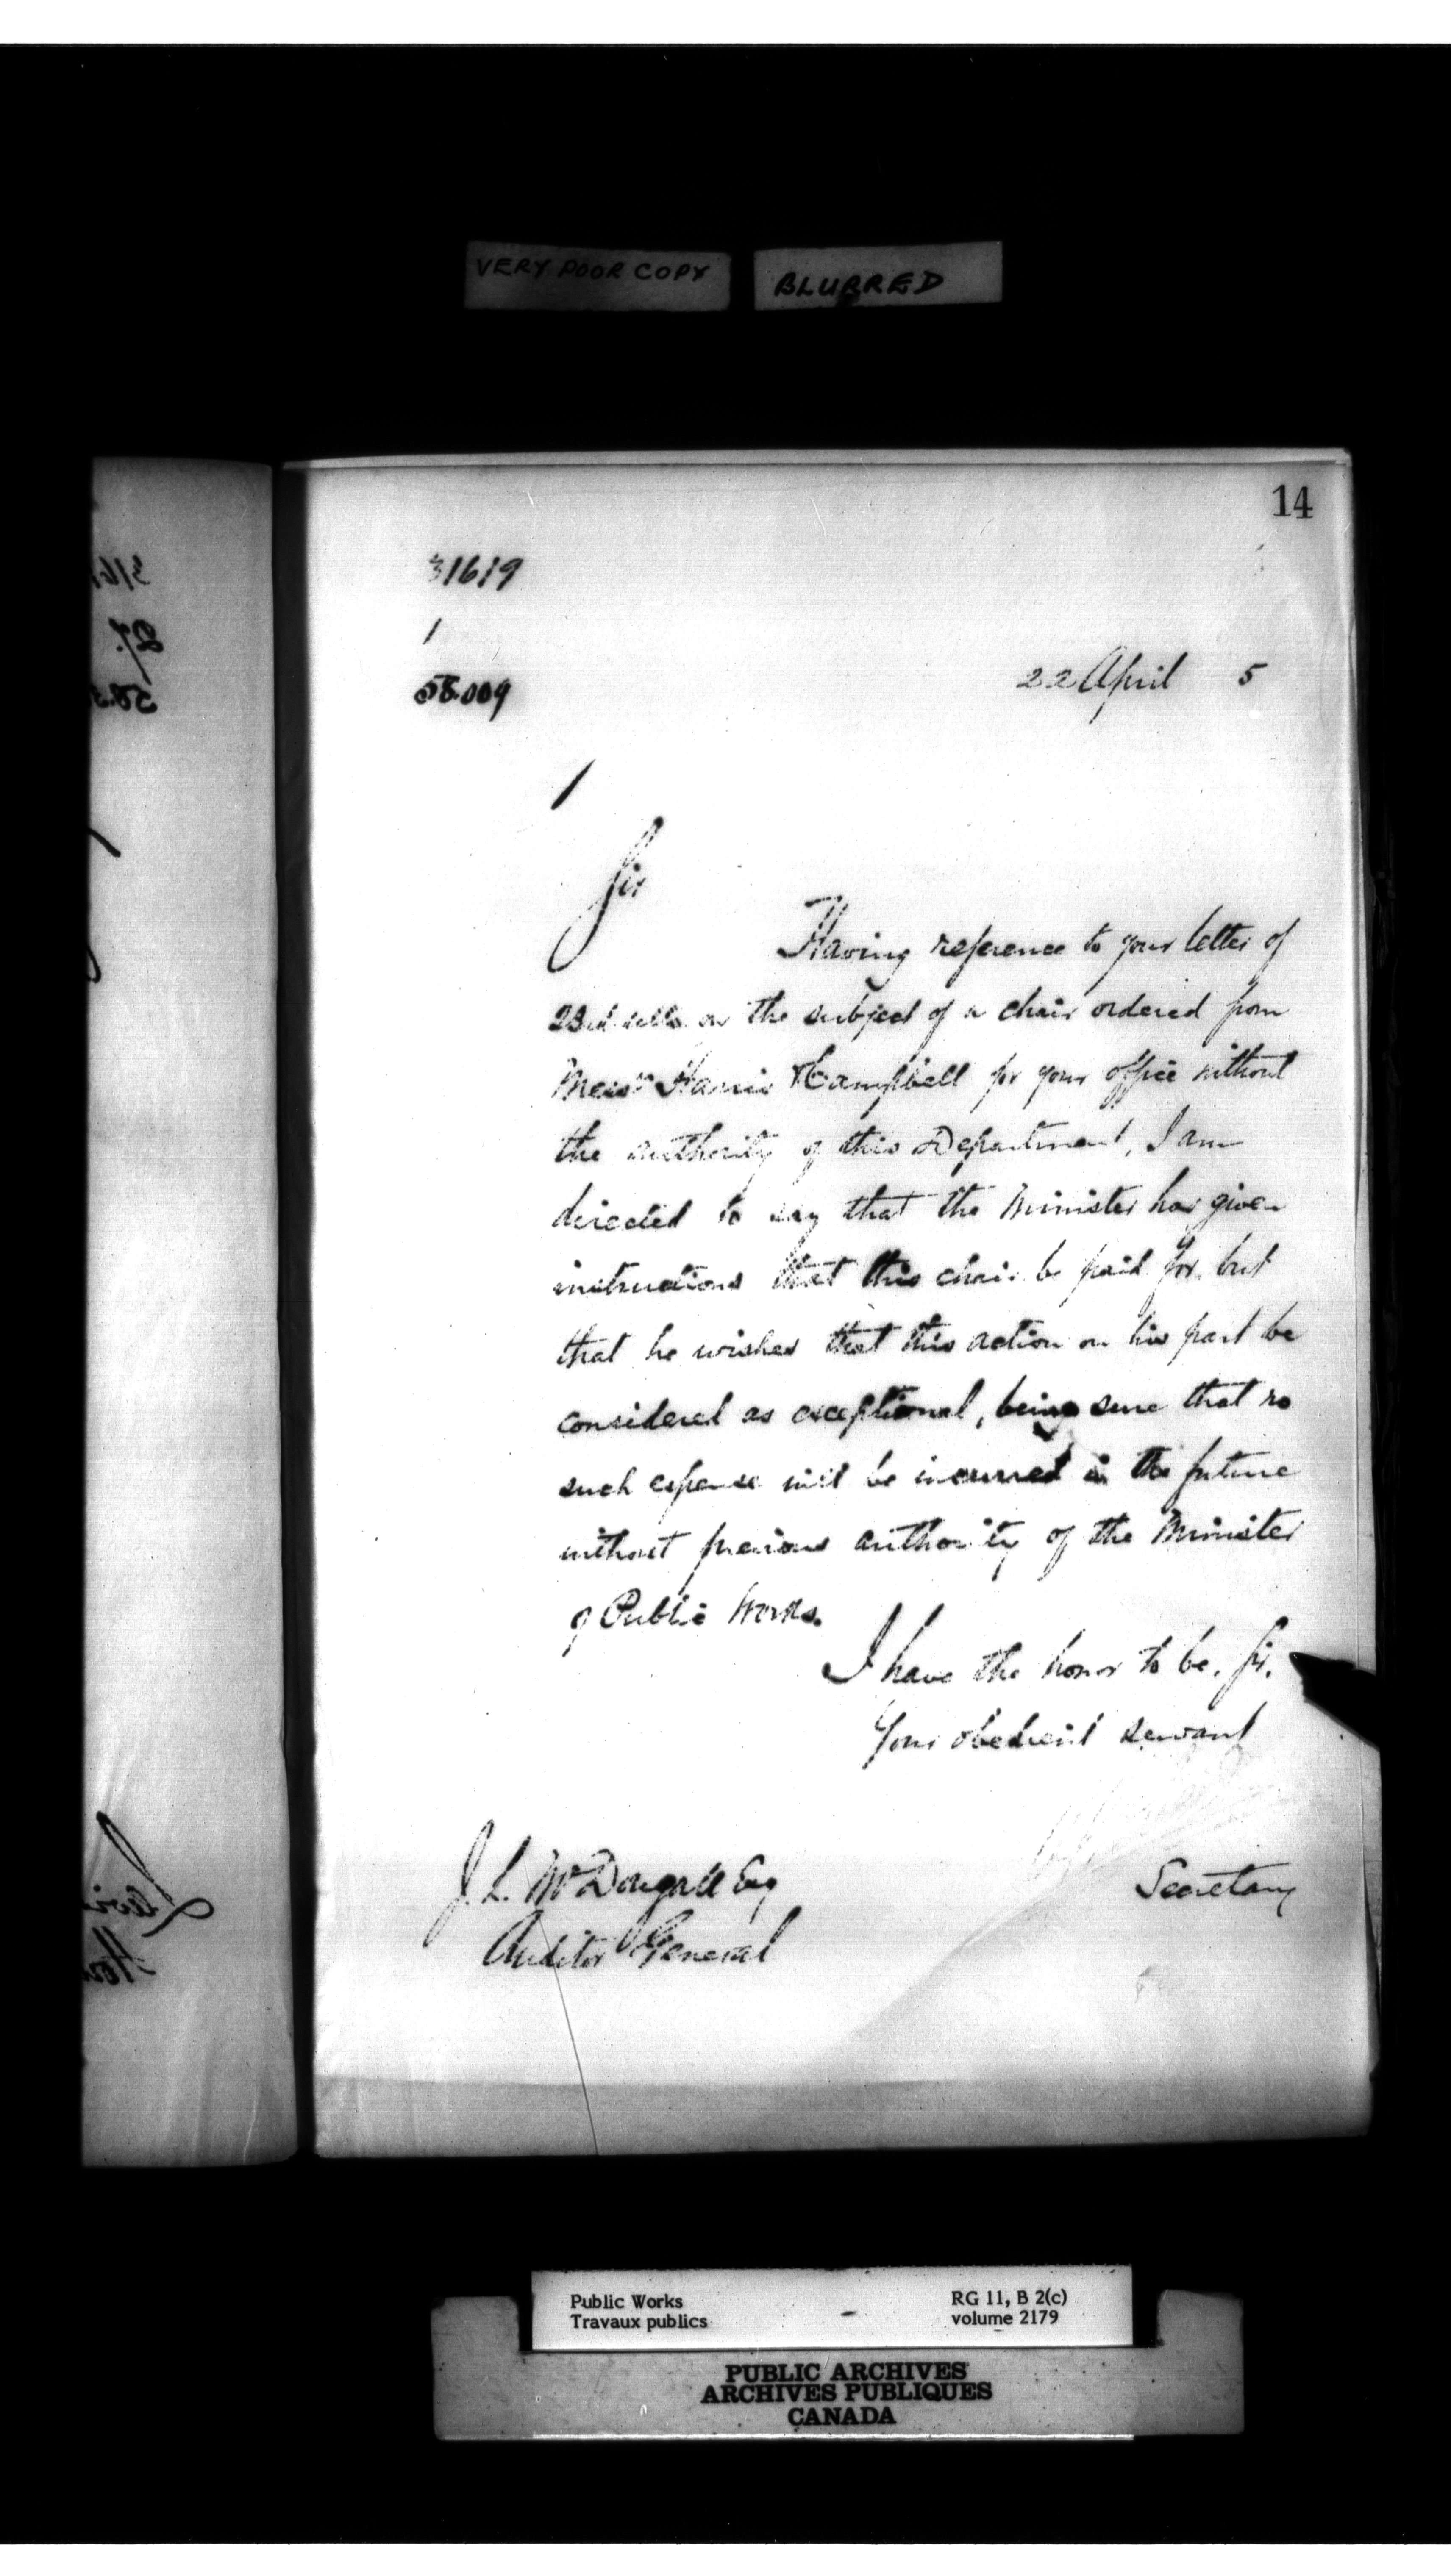 VERY POOR COPY
BLURRED
14
31619
1
58.009
22 April 5
1
Sir
Having reference to your letter of
23rd on the subject of a chair ordered from
Messrs Harris & Campbell for your office without
the authority of this Department, I am
directed to say that the Minister has given
instructions that this chair be paid for, but
that he wishes that this action on his part be
considered as exceptional, being sure that no
such expense will be incurred in the future
without previous authority of the Minister
of Public Works.
I have the honor to be, Sir,
Your obedient servant
J. L. McDougall Esq
Secretary
Auditor General
Public Works
Travaux publics
RG 11, B 2(c)
volume 2179
PUBLIC ARCHIVES
ARCHIVES PUBLIQUES
CANADA